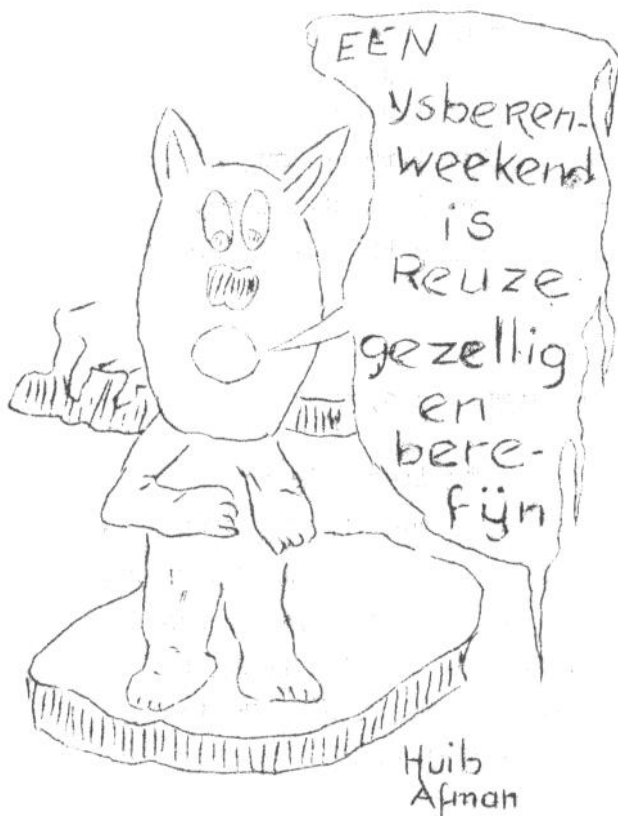 EEN
Ysberen-
weekend
is
Reuze
gezellig
en
bere-
fijn
Huib
Afman